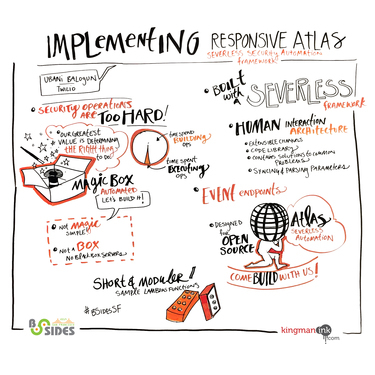 IMPLEMENTING RESPONSIVE ATLAS
SEVERLESS SECURITY AUTOMATION
FRAMEWORK!
UBANI BALOGUN
TWILIO
• SECURITY OPERATIONS
ARE TOO HARD!
• OUR GREATEST
VALUE IS DETERMINING
THE RIGHT THING
TO DO!
TIME SPEND
BUILDING
OPS
TIME SPENT
EXECUTING
OPS
MAGIC BOX
AUTOMATED
LET'S BUILD IT!
• NOT MAGIC
SIMPLE
• NOT A BOX
NO BLACKBOX SERVERS
SHORT & MODULER!
SAMPLE LAMBDA FUNCTIONS
#BSIDESSF
BSIDES
• BUILT
WITH A SEVERLESS
FRAMEWORK
• HUMAN INTERACTION
ARCHITECTURE
• EXTENSIBLE CHANNELS
• CODE LIBRARY
• CONTAINS SOLUTIONS TO COMMON
PROBLEMS
• SYNCING & PARSING PARAMETERS
• EVENT ENDPOINTS
• DESIGNED
for OPEN
SOURCE
ATLAS
SEVERLESS
AUTOMATION
COME BUILD WITH US!
kingmanink
.com